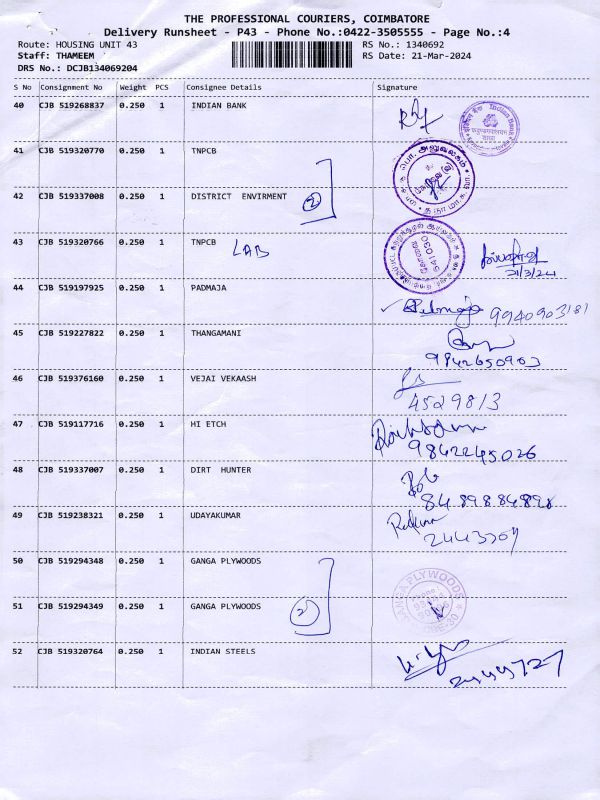 THE PROFESSIONAL COURIERS, COIMBATORE
Delivery Runsheet - P43 - Phone No.:0422-3505555 - Page No.:4
Route: HOUSING UNIT 43 RS No.: 1340692
Staff: THAMEEM RS Date: 21-Mar-2024
DRS No.: DCJB134069204
S No Consignment No Weight PCS Consignee Details Signature
40 CJB 519268837 0.250 1 INDIAN BANK
41 CJB 519320770 0.250 1 TNPCB
42 CJB 519337008 0.250 1 DISTRICT ENVIRMENT 2
43 CJB 519320766 0.250 1 TNPCB LAB
641030
21/3/24
44 CJB 519197925 0.250 1 PADMAJA
9940903181
45 CJB 519227822 0.250 1 THANGAMANI
9842650903
46 CJB 519376160 0.250 1 VEJAI VEKAASH
4529813
47 CJB 519117716 0.250 1 HI ETCH
9842245026
48 CJB 519337007 0.250 1 DIRT HUNTER
49 CJB 519238321 0.250 1 UDAYAKUMAR
50 CJB 519294348 0.250 1 GANGA PLYWOODS
GANGA PLYWOODS
51 CJB 519294349 0.250 1 GANGA PLYWOODS 2
52 CJB 519320764 0.250 1 INDIAN STEELS